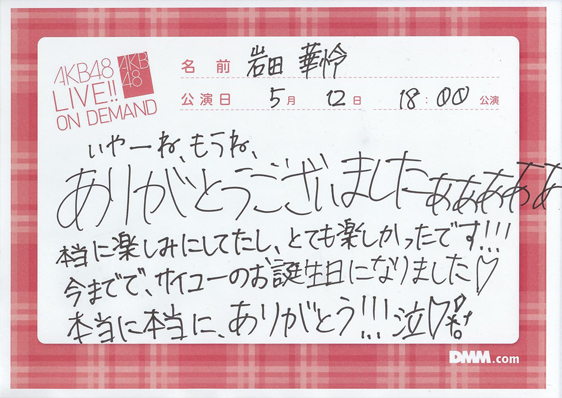 AKB48
LIVE!!
ON DEMAND
AKB
48
名前 岩田 華怜
公演日 5月 12日 18:00 公演
いやーね、もうね、
ありがとうございましたぁぁぁぁぁ
本当に楽しみにしてたし、とても楽しかったです!!!
今までで、サイコーのお誕生日になりました♡
本当に本当に、ありがとう!!!泣♡
DMM.com